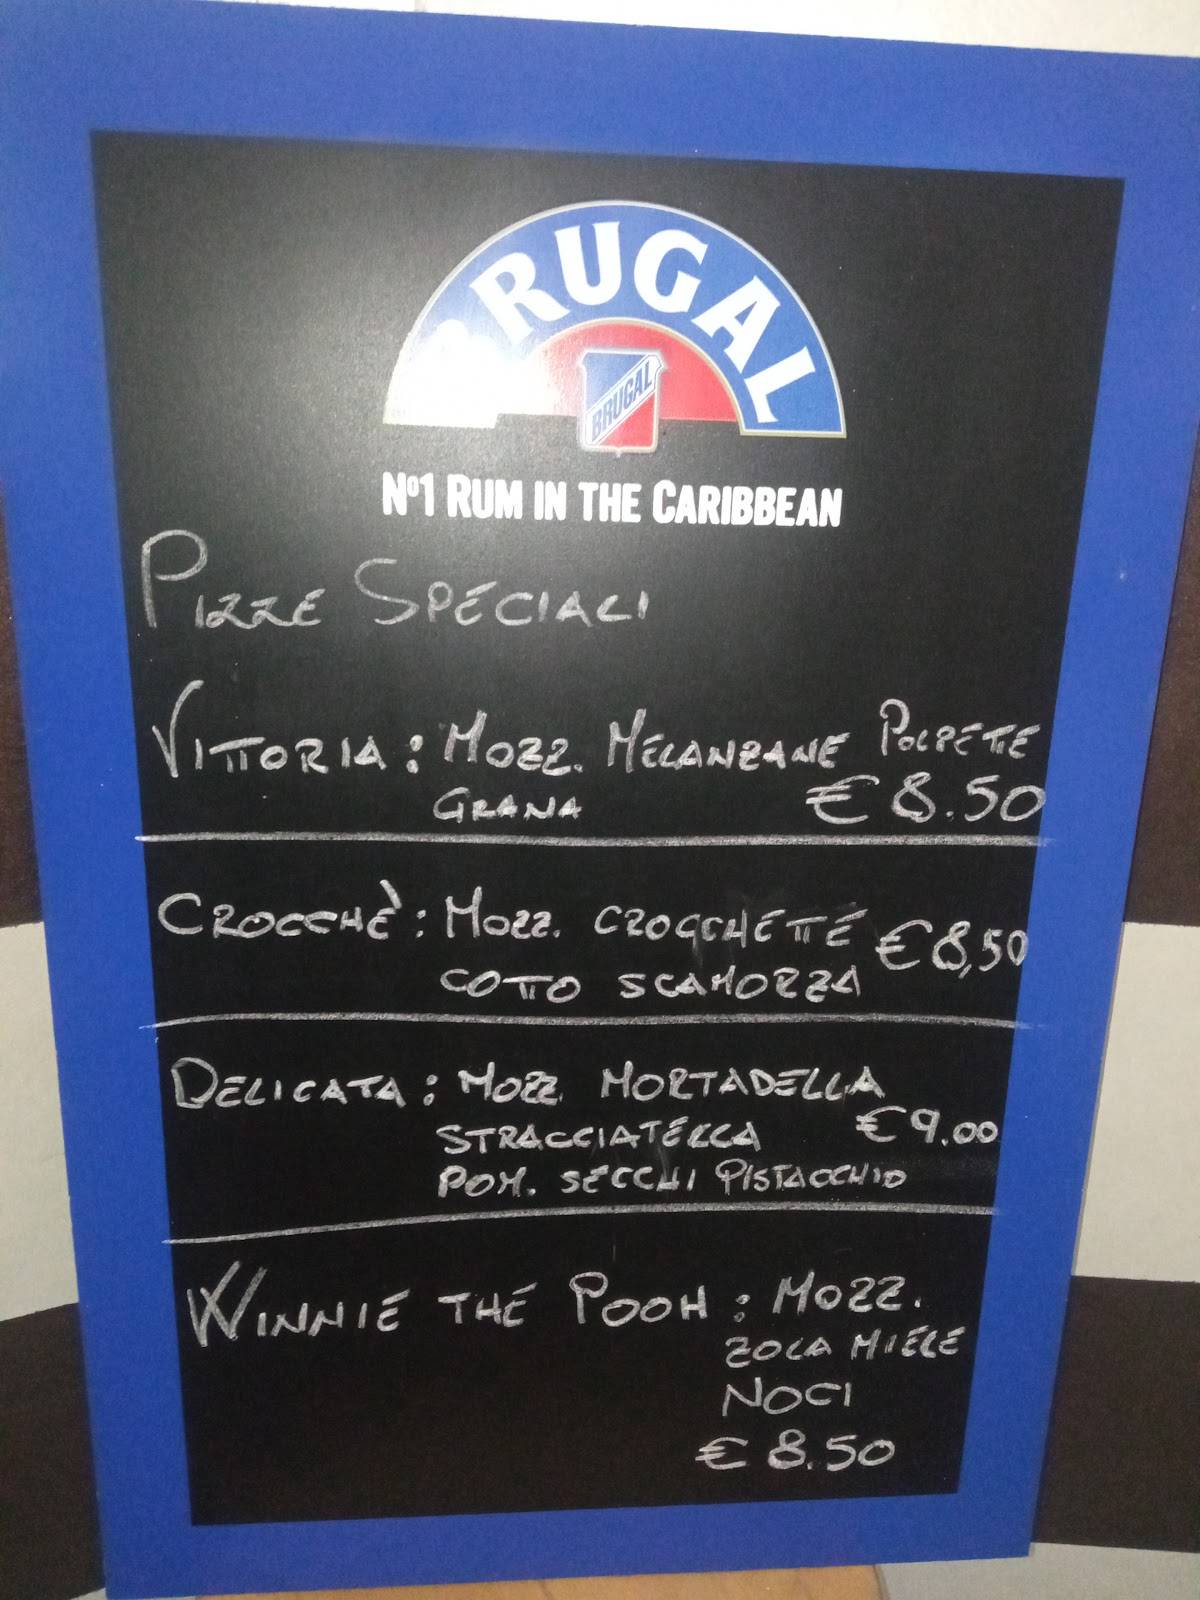 BRUGAL
BRUGAL
Nº1 RUM IN THE CARIBBEAN
PIZZE SPECIALI
VITTORIA: MOZZ. MELANZANE POLPETTE
GRANA € 8.50
CROCCHÈ: MOZZ. CROCCHETTE € 8,50
COTTO SCAMORZA
DELICATA: MOZZ. MORTADELLA
STRACCIATELLA € 9.00
POM. SECCHI PISTACCHIO
WINNIE THE POOH: MOZZ.
ZOLA MIELE
NOCI
€ 8.50